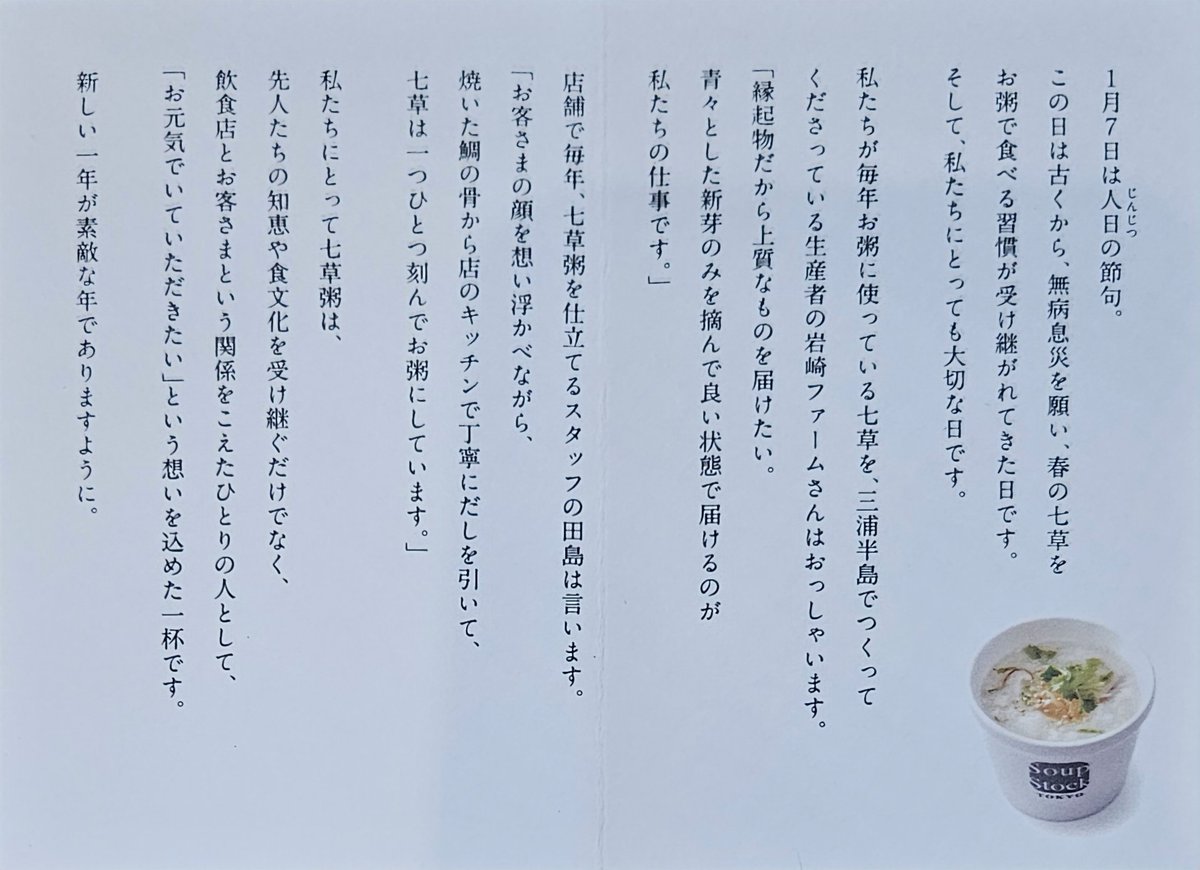 1月7日は人日の節句。
じんじつ
この日は古くから、無病息災を願い、春の七草を
お粥で食べる習慣が受け継がれてきた日です。
そして、私たちにとっても大切な日です。
私たちが毎年お粥に使っている七草を、三浦半島でつくって
くださっている生産者の岩崎ファームさんはおっしゃいます。
「縁起物だから上質なものを届けたい。
青々とした新芽のみを摘んで良い状態で届けるのが
私たちの仕事です。」
店舗で毎年、七草粥を仕立てるスタッフの田島は言います。
「お客さまの顔を想い浮かべながら、
焼いた鯛の骨から店のキッチンで丁寧にだしを引いて、
七草は一つひとつ刻んでお粥にしています。」
私たちにとって七草粥は、
先人たちの知恵や食文化を受け継ぐだけでなく、
飲食店とお客さまという関係をこえたひとりの人として、
「お元気でいていただきたい」という想いを込めた一杯です。
新しい一年が素敵な年でありますように。
Soup
Stock
TOKYO